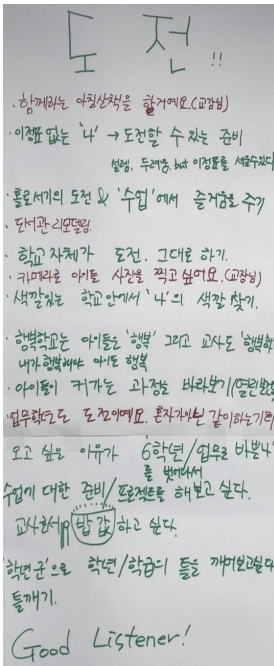 도 전 !!
· 함께하는 아침산책을 할거예요.(교장님)
· 이정표 없는 '나' → 도전할 수 있는 준비
설렘, 두려움. but 이정표를 세울수있다
· 홀로서기의 도전 & '수업'에서 즐거움을 주기
· 도서관 리모델링.
· 학교 자체가 도전. 그대로 하기.
· 카메라로 아이들 사진을 찍고 싶어요.(교장님)
· 색깔있는 학교 안에서 '나'의 색깔 찾기.
· 행복학교는 아이들은 '행복' 그리고 교사도 '행복
내가 행복해야 아이도 행복
· 아이들이 커가는 과정을 바라보기
업무학년도 도전이예요. 혼자가 아닌 같이하는
오고 싶은 이유가 6학년/업무로 바쁜'나'
를 벗어나서
수업기 대한 준비/프로젝트를 해보고 싶다.
교사로서 밥값 하고 싶다.
'학년군'으로 학년/학급의 틀을 깨어보고싶다
틀깨기.
Good Listener!